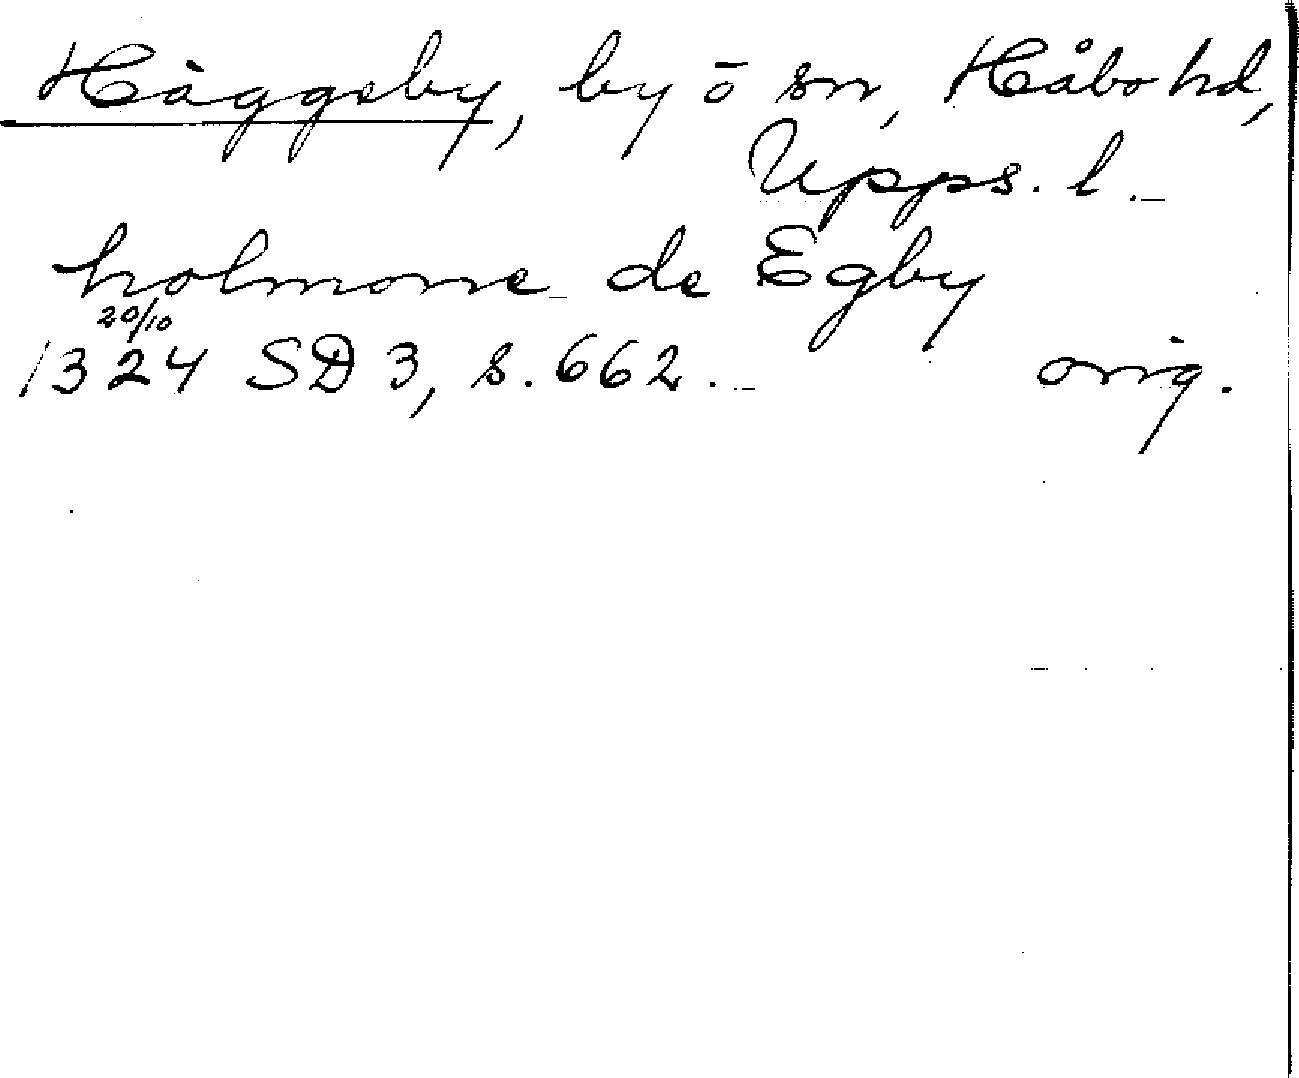 Häggeby, by o sn, Håbo hd,
Upps. l.
holmone de Egby
20/10
1324 SD 3, s. 662. orig.